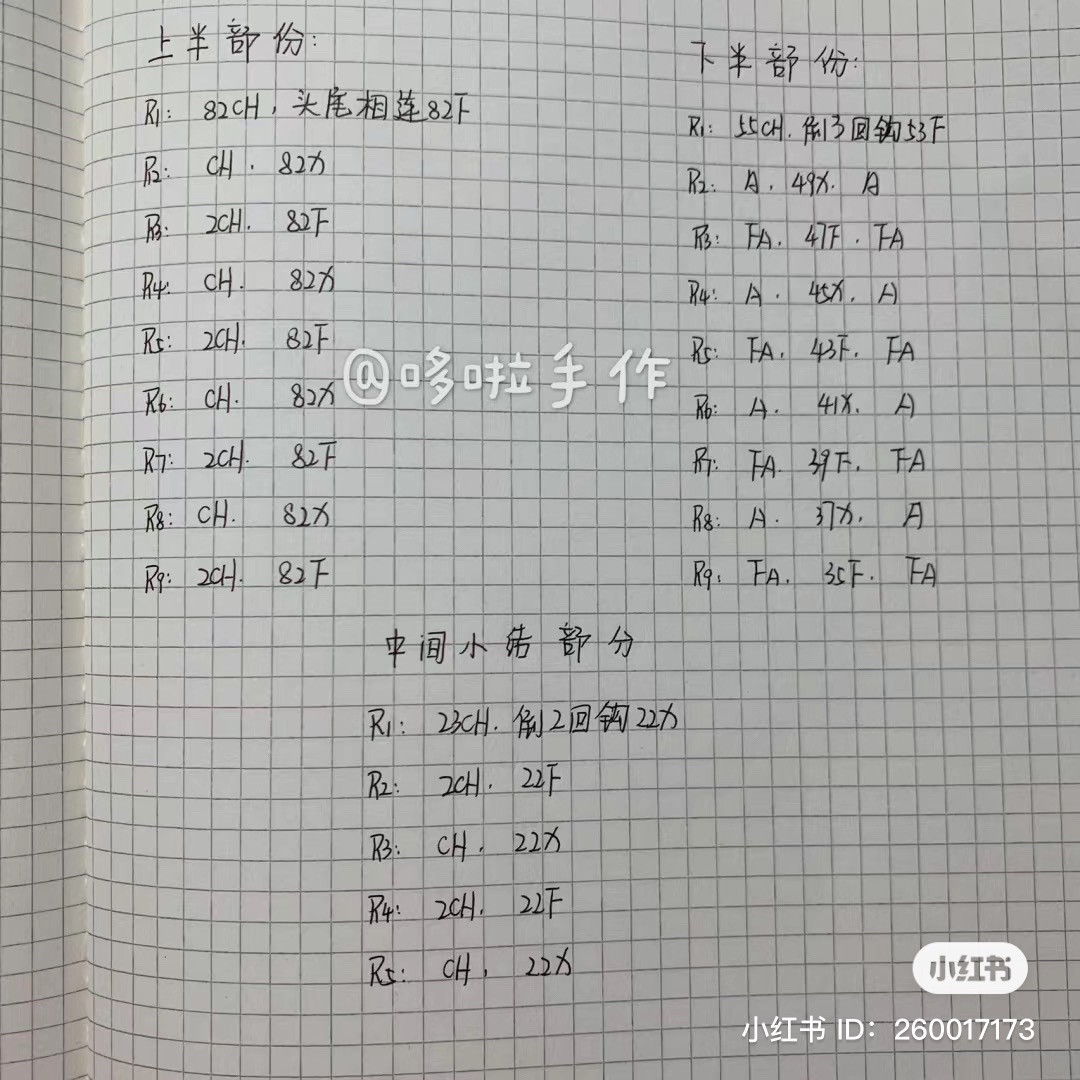 上半部份:
R1: 82CH, 头尾相莲82F
R2: CH. 82X
R3: 2CH. 82F
R4: CH. 82X
R5: 2CH. 82F
R6: CH. 82X
R7: 2CH. 82F
R8: CH. 82X
R9: 2CH. 82F
下半部份:
R1: 55CH. 倒3回钩53F
R2: A. 49X. A
R3: FA. 47F. FA
R4: A. 45X. A
R5: FA. 43F. FA
R6: A. 41X. A
R7: FA. 39F. FA
R8: A. 37X. A
R9: FA. 35F. FA
@哆啦手作
中间小结部分
R1: 23CH. 倒2回钩22X
R2: 2CH. 22F
R3: CH. 22X
R4: 2CH. 22F
R5: CH, 22X
小红书
小红书 ID: 260017173